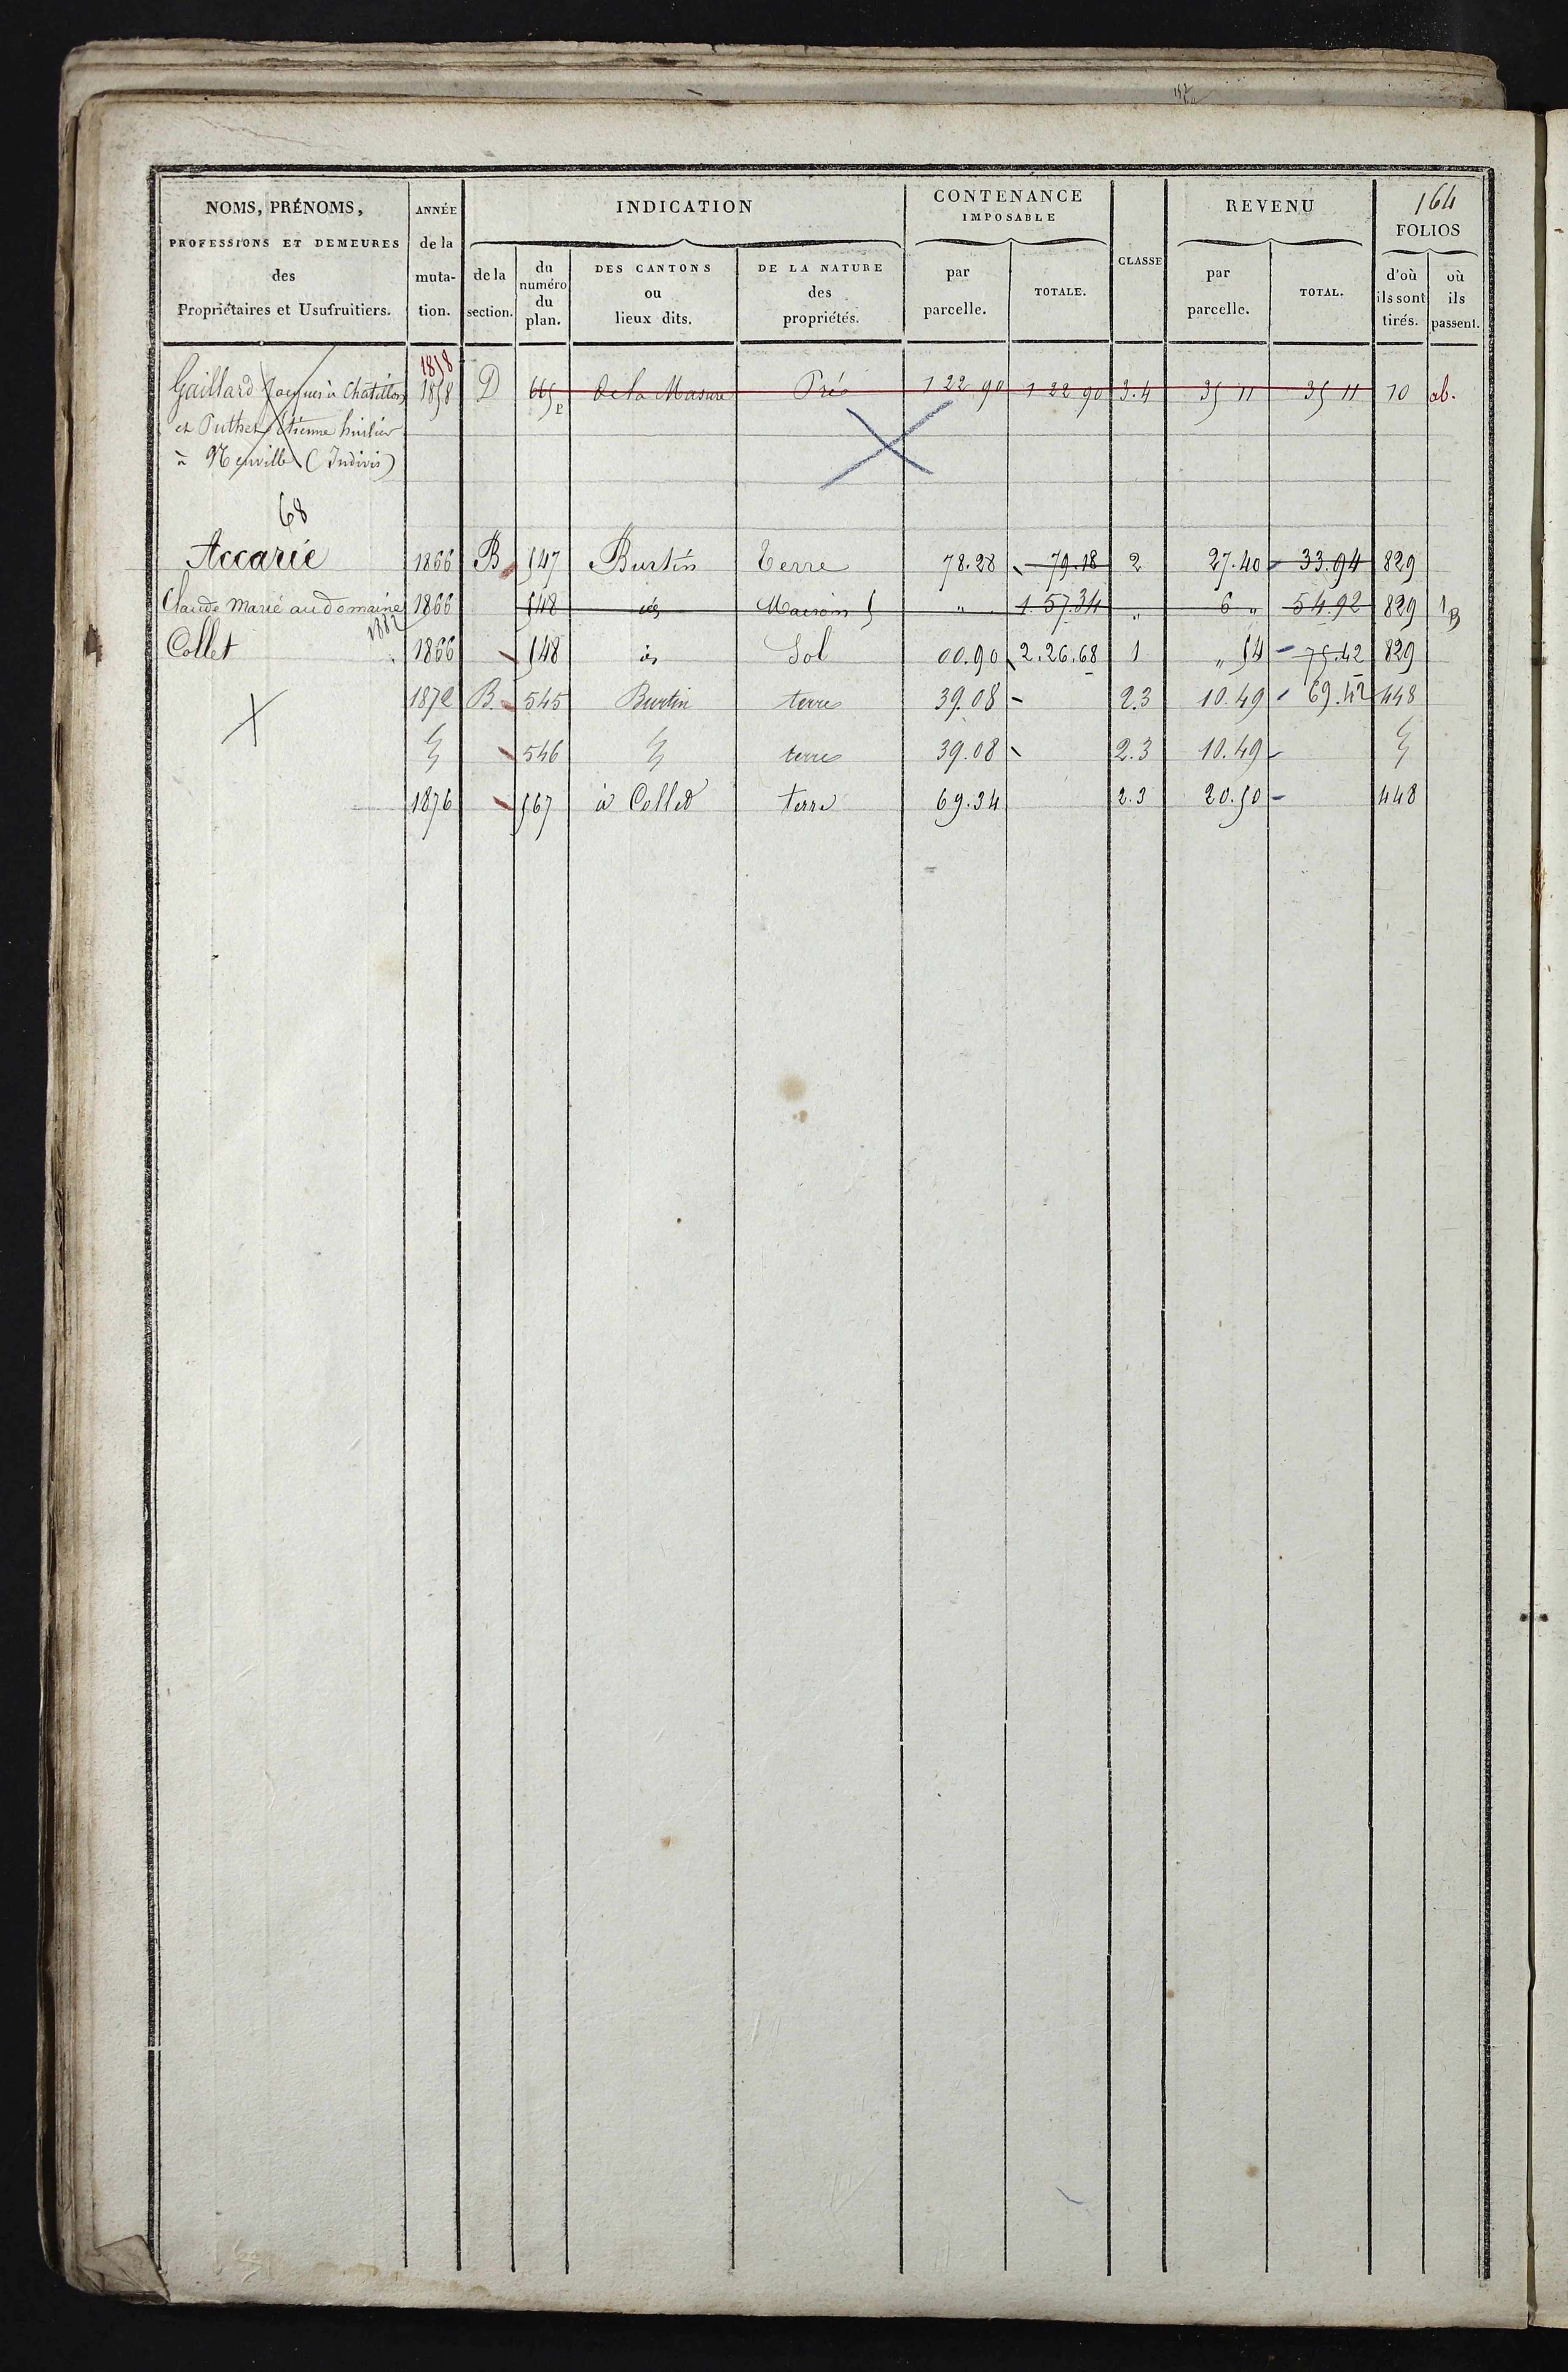 164
NOMS, PRÉNOMS, ANNÉE INDICATION CONTENANCE IMPOSABLE CLASSE REVENU FOLIOS
PROFESSIONS ET DEMEURES des Propriétaires et Usufruitiers. de la mutation. de la section. du numéro du plan. DES CANTONS ou lieux dits. DE LA NATURE des propriétés. par parcelle. TOTALE. par parcelle. TOTAL. d'où ils sont tirés. où ils passent.
1858
Gaillard Jacques à Chatillon 1858 D 665 P de la Masure Pré 1 22 90 1 22 90 3.4 35 11 35 11 10 ab.
et Puthet Etienne huissier
à Neuville (Indivis)
68
Accarie 1866 B 547 Burtin Terre 78.28 79.18 2 27.40 33.94 829
Claude Marie au domaine 1866 548 id Maison 5 " 1.57.34 " 6 " 54.92 829 1B
1882
Collet 1866 548 id Sol 00.90 2.26.68 1 " 54 75.42 829
1872 B. 545 Burtin terre 39.08 2.3 10.49 69.42 448
546 terre 39.08 2.3 10.49
1876 567 à Collet terre 69.34 2.3 20.50 448